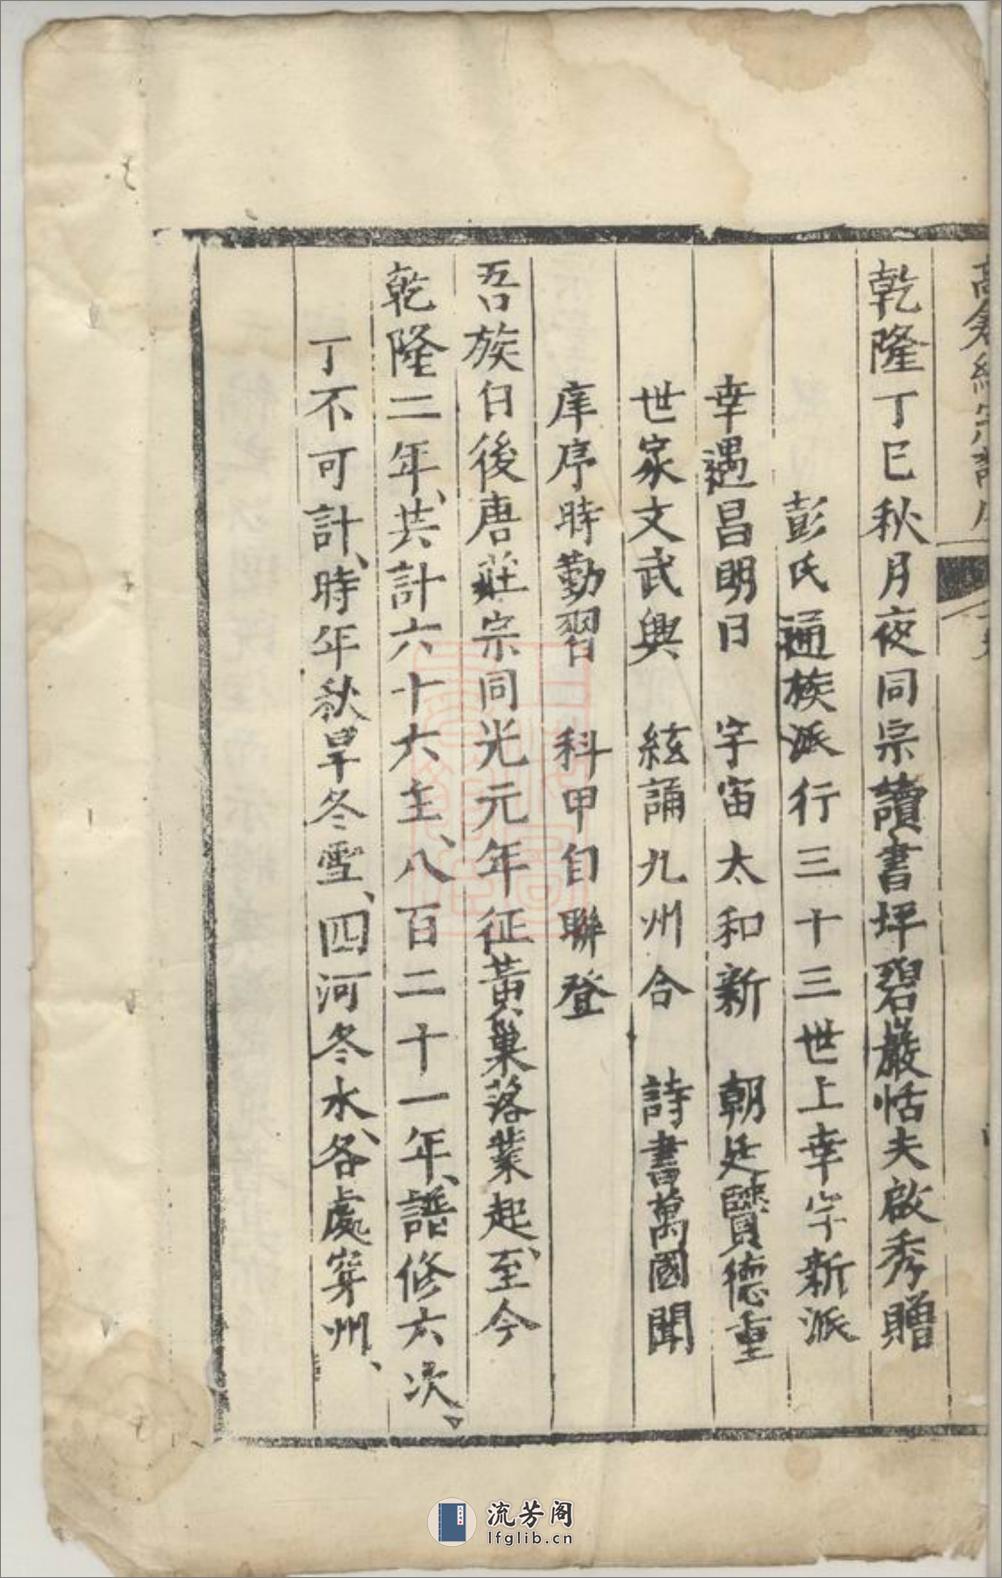 乾隆丁巳秋月夜同宗讀書坪碧巖恬夫啟秀贈
彭氏通族派行三十三世上幸字新派
幸遇昌明日　宇宙太和新　朝廷賢德重
世家文武興　絃誦九州合　詩書萬國聞
庠序時勤習　科甲自聯登
吾族自後唐莊宗同光元年征黃巢落業起、至今
乾隆二年、共計六十六主、八百二十一年、譜修六次、
丁不可計、時年秋旱冬雪、四河冬水、各處穿州、
流芳阁
lfglib.cn